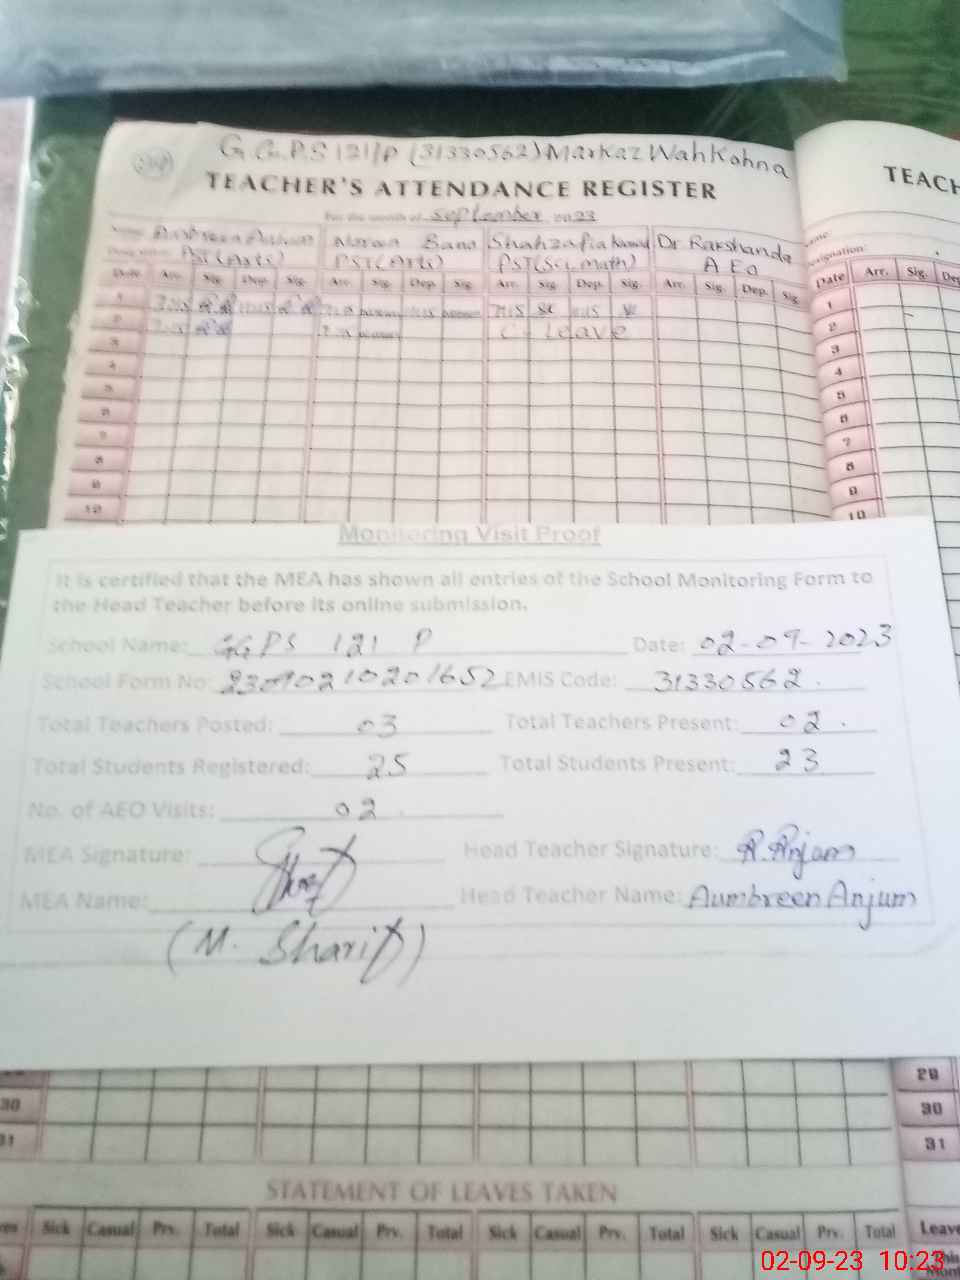 G.G.P.S 121/P (31330562) Markaz Wah Kohna
TEACHER'S ATTENDANCE REGISTER
TEACH
For the month of September 2023
Bano Shahzafia Dr Rakshanda
PST (Arts) PST (Arts) PST (Sci, Math) AEO
Designation:
Date Arr. Sig. Dep. Sig. Arr. Sig. Dep. Sig. Arr. Sig. Dep. Sig. Arr. Sig. Dep. Sig. Date Arr. Sig. Dep
1 1
2 C- leave 2
3 3
4 4
5 5
6 6
7 7
8 8
9 9
10 10
Monitoring Visit Proof
It is certified that the MEA has shown all entries of the School Monitoring Form to
the Head Teacher before its online submission.
School Name: GGPS 121 P Date: 02-09-2023
School Form No: 23090210201652 EMIS Code: 31330562.
Total Teachers Posted: 03 Total Teachers Present: 02.
Total Students Registered: 25 Total Students Present: 23
No. of AEO Visits: 02
MEA Signature: Head Teacher Signature: A. Anjam
MEA Name: Head Teacher Name: Aumbreen Anjum
(M. Sharif)
29
30 30
31 31
STATEMENT OF LEAVES TAKEN
Sick Casual Prv. Total Sick Casual Prv. Total Sick Casual Prv. Total Sick Casual Prv. Total Leave
This
Mont
02-09-23 10:23